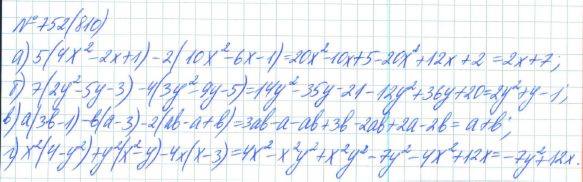 № 752(810)
а) 5(4x²-2x+1)-2(10x²-6x-1)=20x²-10x+5-20x²+12x+2=2x+7;
б) 7(2y²-5y-3)-4(3y²-9y-5)=14y²-35y-21-12y²+36y+20=2y²+y-1;
в) a(3b-1)-b(a-3)-2(ab-a+b)=3ab-a-ab+3b-2ab+2a-2b=a+b;
г) x²(4-y²)+y²(x²-7)-4x(x-3)=4x²-x²y²+x²y²-7y²-4x²+12x=-7y²+12x.